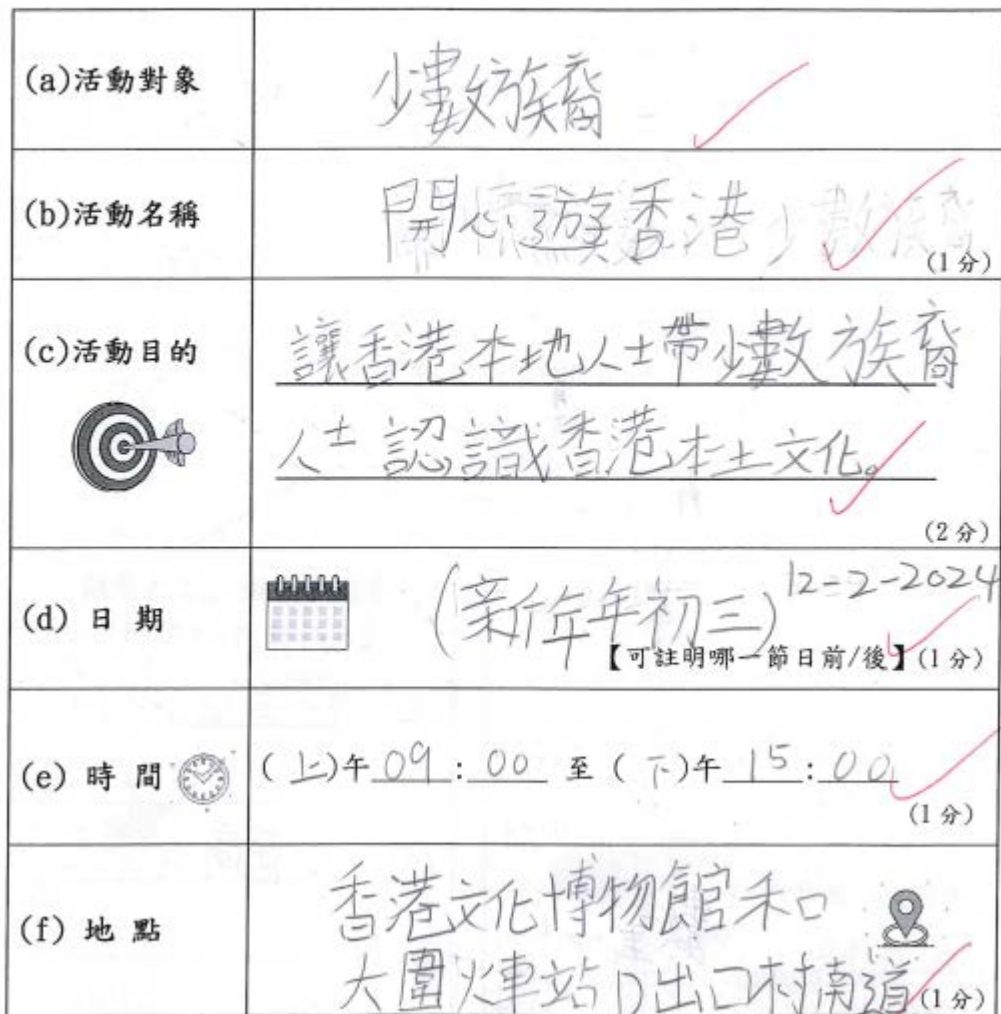 (a)活動對象
少數族裔
(b)活動名稱
開心遊香港
(1分)
(c)活動目的
讓香港本地人士帶少數族裔
人士認識香港本土文化。
(2分)
(d) 日 期
(新年年初三) 12-2-2024
【可註明哪一節日前/後】(1分)
(e) 時 間
(上)午 09 : 00 至 (下)午 15 : 00
(1分)
(f) 地 點
香港文化博物館和
大圍火車站D出口村南道
(1分)